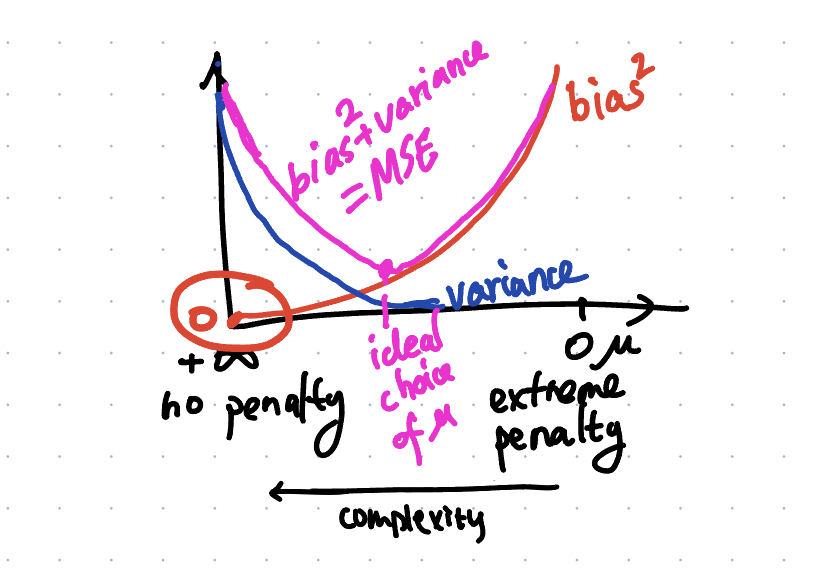 bias² + variance
= MSE
bias²
variance
0
+ ∞
no penalty
ideal
choice
of μ
0 μ
extreme
penalty
complexity